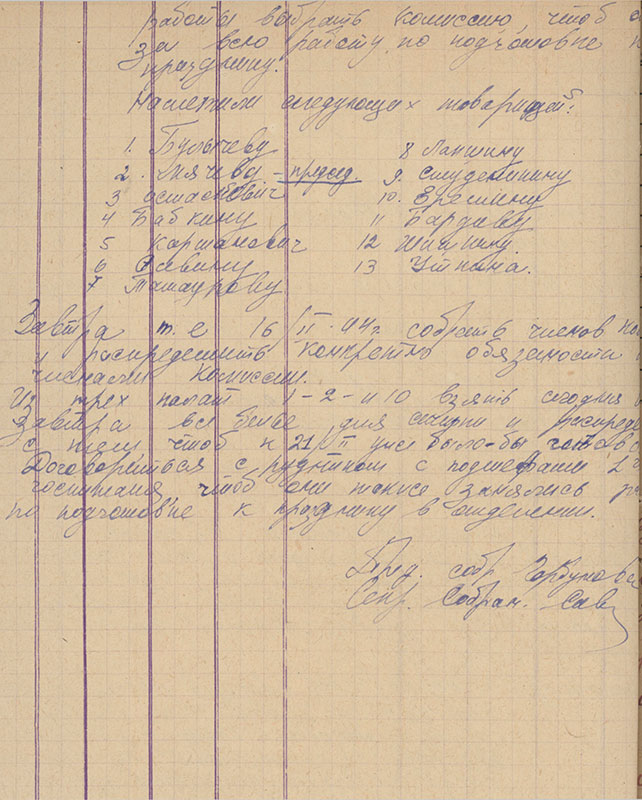 работы выбрать комиссию, чтоб
за всю работу по подготовке к
празднику.
Наметили следующих товарищей:
1. Булычеву
2. Князеву – председ.
3 Осташкович
4 Бабкину
5 Каршанович
6 Савину
7 Ташаурову
8 Лапшину
9. Студеникину
10. Ерёмину
11 Бардаву
12 Шишкину.
13 Уткина.
Завтра т.е 16/II-44г собрать членов
и распределить конкретно обязаности
членами комиссии.
Из трех палат 1-2-и 10 взять сегодня
Завтра все белье для стирки и распреде
с тем, чтоб к 21/II уже было-бы готово
Договориться с рудником с подшефами
госпиталя, чтоб они также занялись
по подготовке к празднику в отделении.
Пред. собр Горбунова
Секр. Собран. Сав